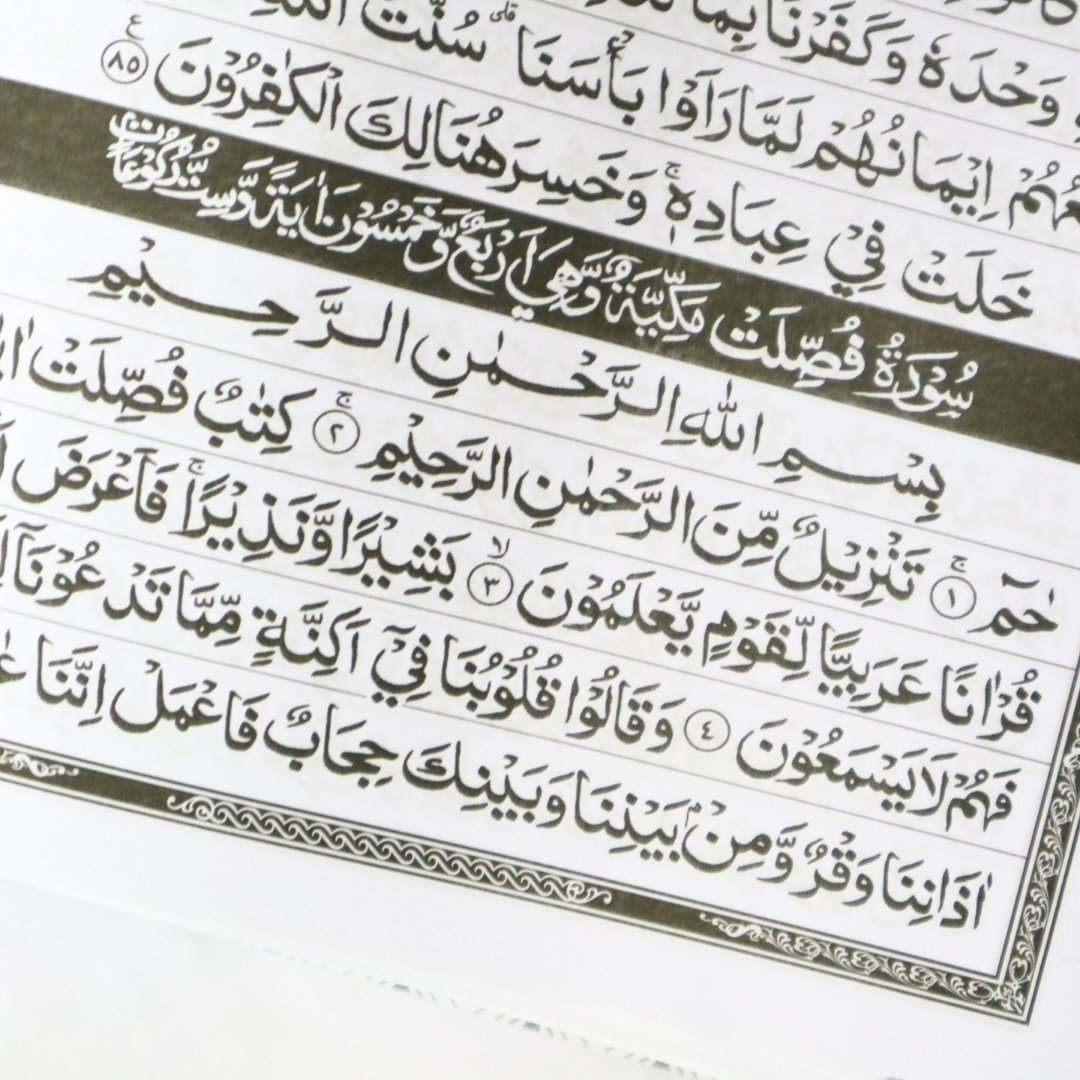 وَحْدَهٗ وَكَفَرْنَا بِمَا
اِيْمَانُهُمْ لَمَّا رَاَوْا بَأْسَنَا ۗ سُنَّتَ
خَلَتْ فِيْ عِبَادِهٖۚ وَخَسِرَ هُنَالِكَ الْكٰفِرُوْنَ ࣖ ۝٨٥
سُوْرَةُ فُصِّلَتْ مَكِّيَّةٌ وَّهِيَ اَرْبَعٌ وَّخَمْسُوْنَ اٰيَةً وَّسِتُّ رُكُوْعَاتٍ
بِسْمِ اللّٰهِ الرَّحْمٰنِ الرَّحِيْمِ
حٰمۤ ۚ ۝١ تَنْزِيْلٌ مِّنَ الرَّحْمٰنِ الرَّحِيْمِ ۚ ۝٢ كِتٰبٌ فُصِّلَتْ
قُرْاٰنًا عَرَبِيًّا لِّقَوْمٍ يَّعْلَمُوْنَ ۙ ۝٣ بَشِيْرًا وَّنَذِيْرًاۚ فَاَعْرَضَ
فَهُمْ لَا يَسْمَعُوْنَ ۝٤ وَقَالُوْا قُلُوْبُنَا فِيْٓ اَكِنَّةٍ مِّمَّا تَدْعُوْنَآ
اٰذَانِنَا وَقْرٌ وَّمِنْۢ بَيْنِنَا وَبَيْنِكَ حِجَابٌ فَاعْمَلْ اِنَّنَا